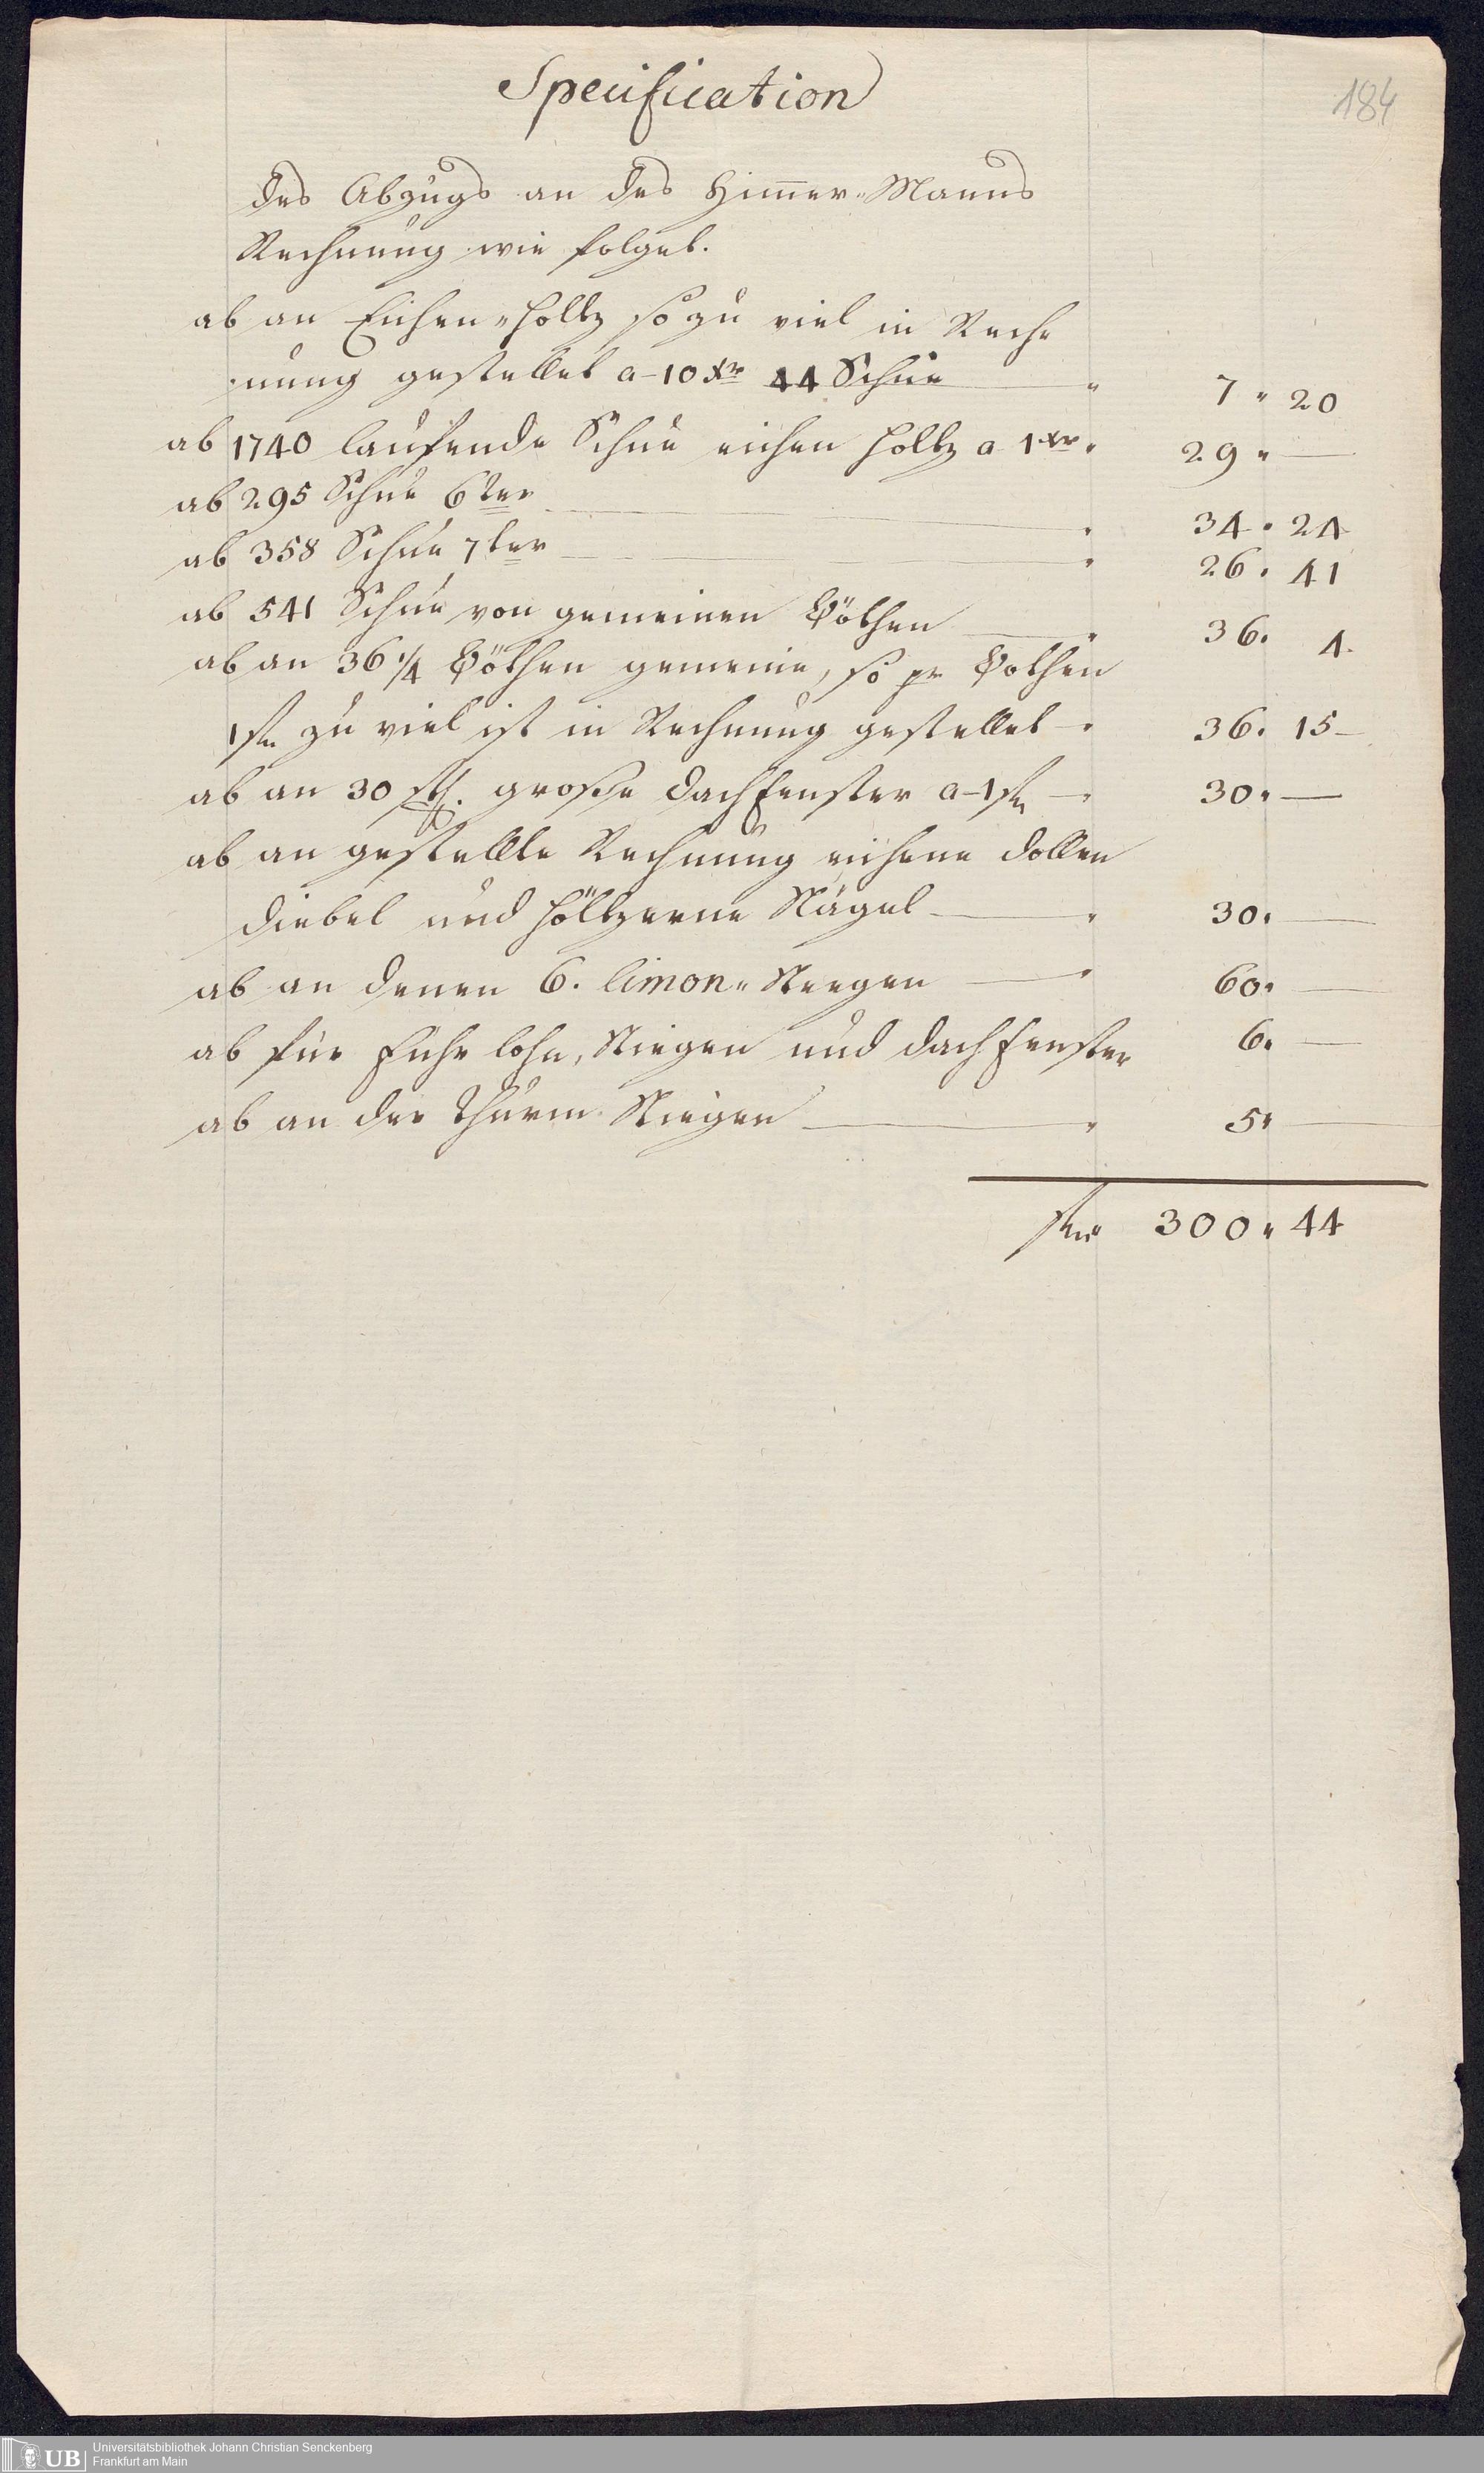 Specification
184
des Abzugs an des Zimmer-Manns
Rechnung wie folget.
ab an Eichen-Holtz so zu viel in Rech
nung gestellet a 10 xr 44 Schue — " 7 " 20
ab 1740 laufende Schue eichen Holtz a 1 xr " 29 " —
ab 295 Schue 6ter — " 34 " 24
ab 358 Schue 7ter — " 26 " 41
ab 541 Schue von gemeinen Böthen — " 36 " 4
ab an 36 1/4 Böthen gemeine, so pr Bothen
1 fl zu viel ist in Rechnung gestellet — " 36 " 15 —
ab an 30 stk. große Dachfenster a 1 fl — " 30 " —
ab an gestellte Rechnung eichene Dollen
Diebel und höltzerne Nägel — " 30 " —
ab an denen 6. limon-Steegen — " 60 " —
ab für Fuhr lohn, Stiegen und Dachfenster 6 " —
ab an der Thurm Stiegen — " 5 " —
fl 300 " 44
UB
Universitätsbibliothek Johann Christian Senckenberg
Frankfurt am Main